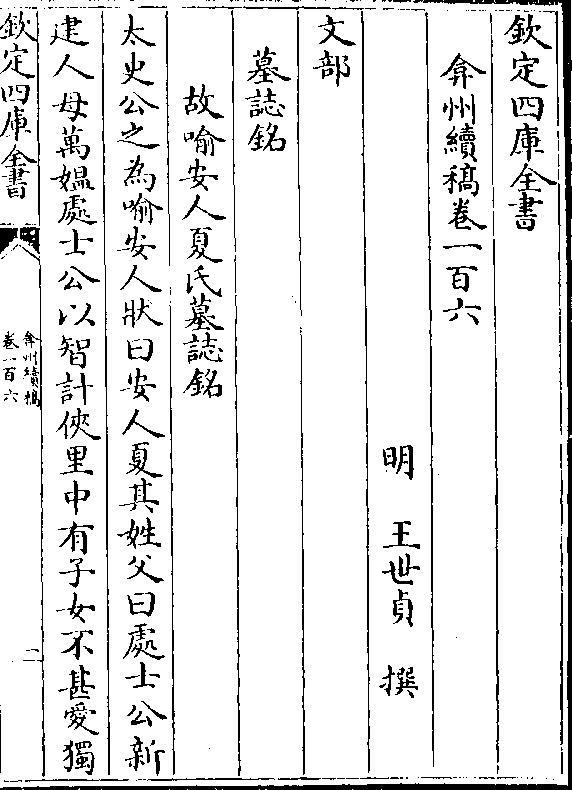 欽定四庫全書
弇州續稿卷一百六
明 王世貞 撰
文部
墓誌銘
故喻安人夏氏墓誌銘
太史公之為喻安人狀曰安人夏其姓父曰處士公新
建人母萬媼處士公以智計俠里中有子女不甚愛獨
欽定四庫全書
弇州續稿
卷一百六
一